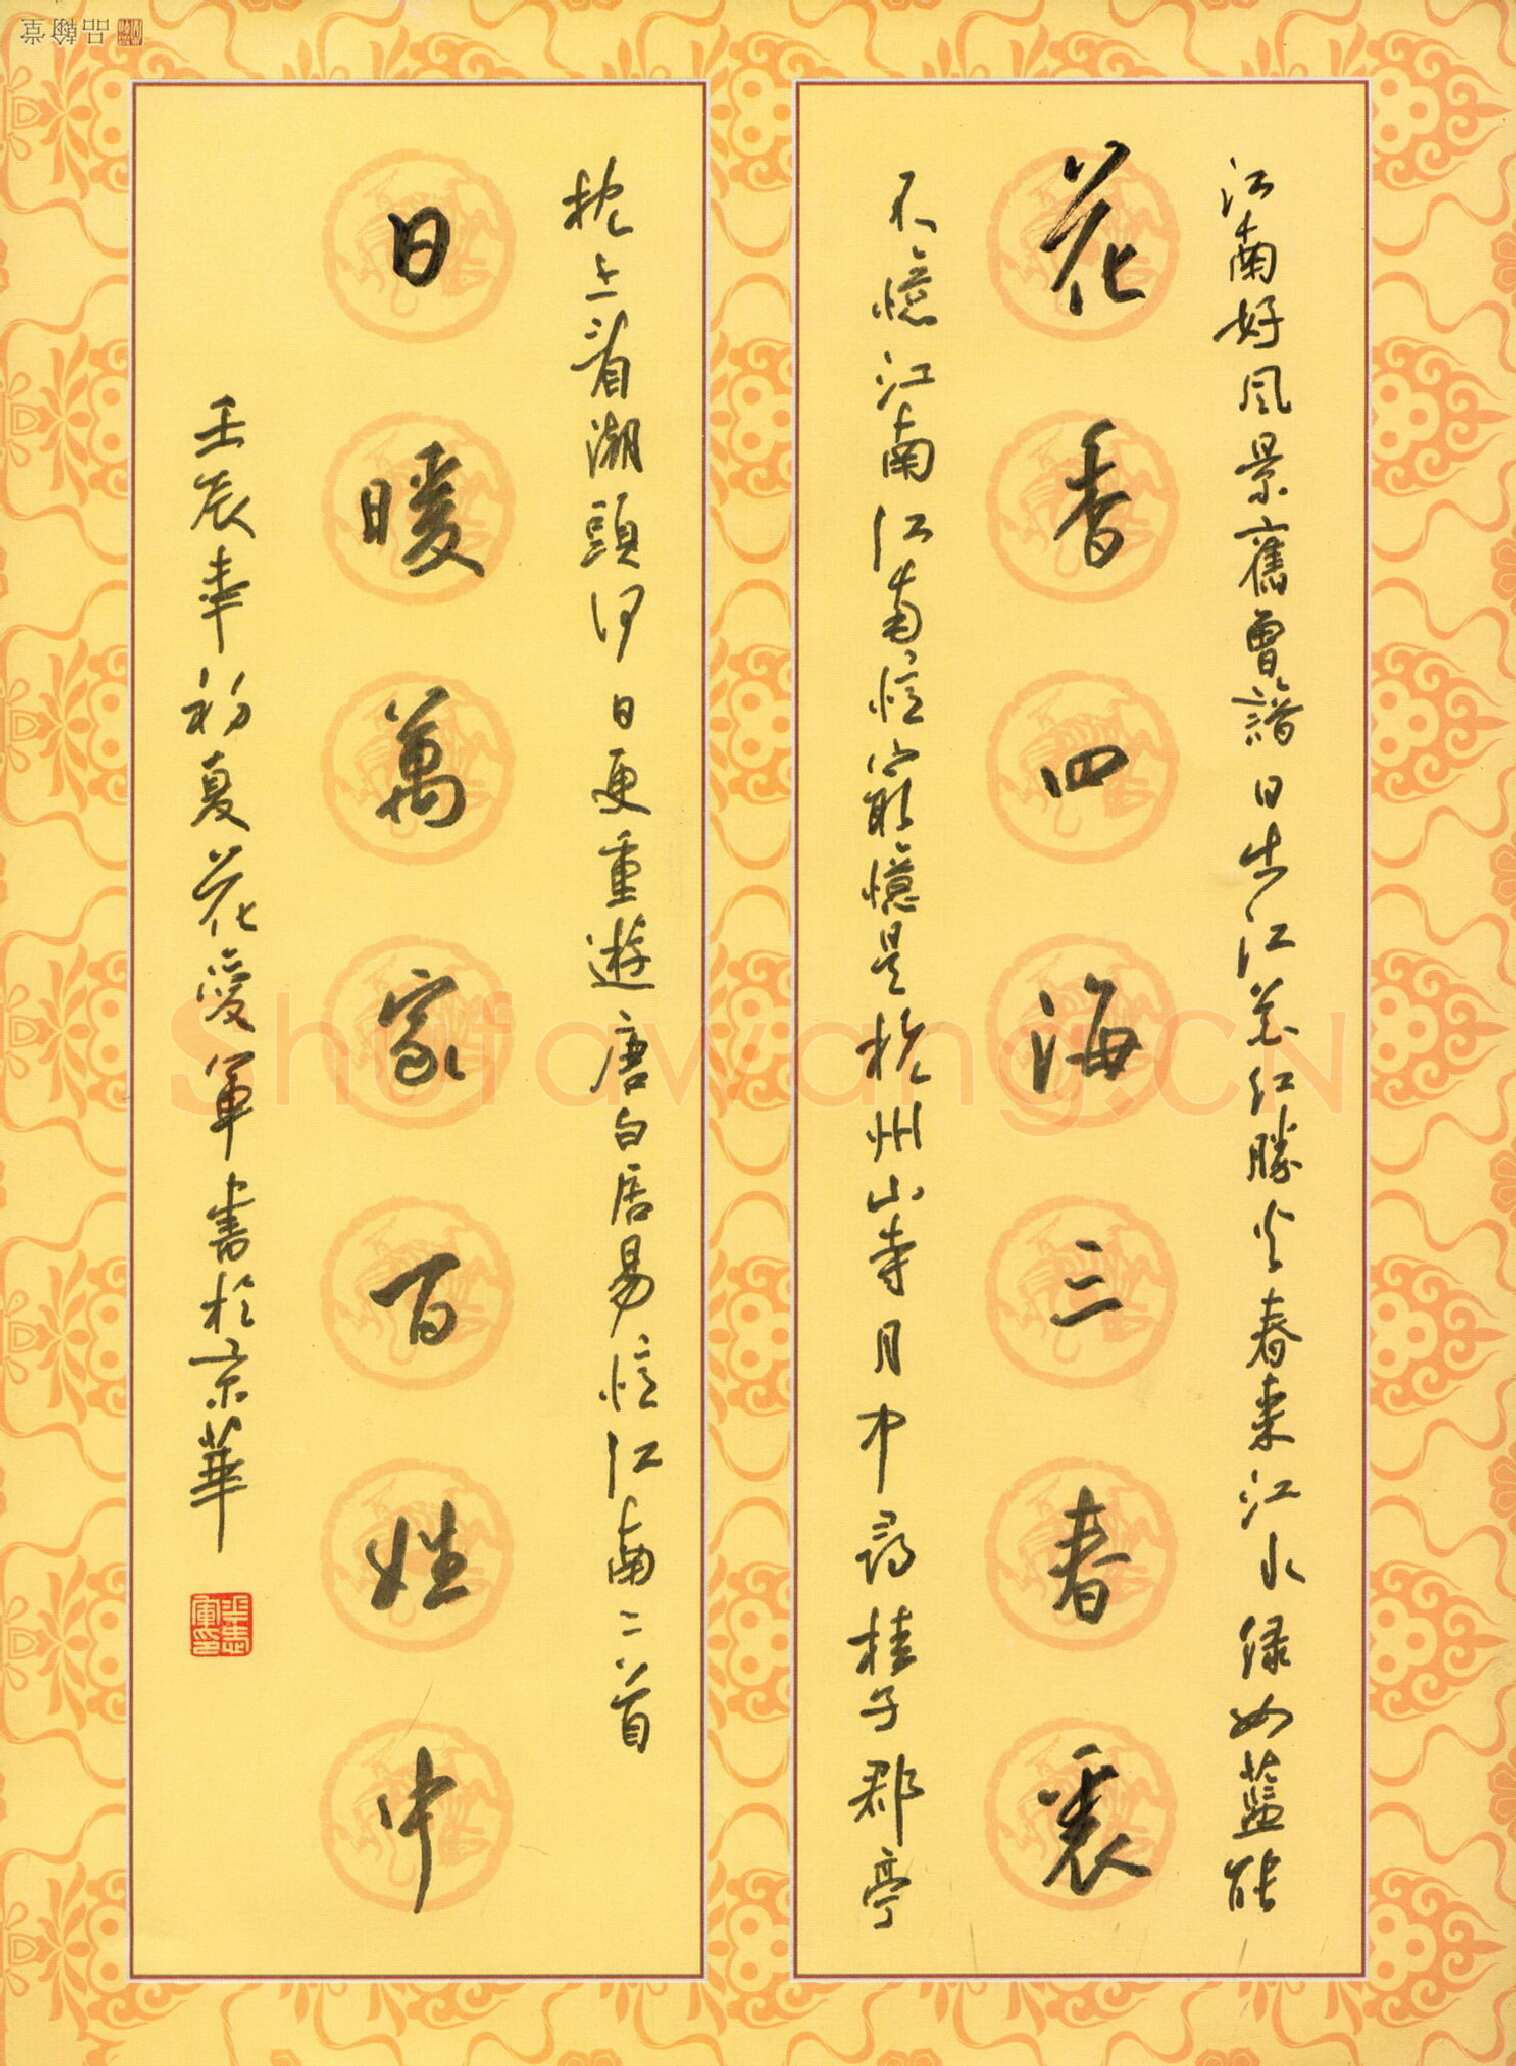 江南好風景舊曾諳日出江花紅勝火春來江水綠如藍能
花香四海三春裏
不憶江南江南憶最憶是杭州山寺月中尋桂子郡亭
枕上看潮頭何日更重遊唐白居易憶江南二首
日暖萬家百姓中
壬辰年初夏花愛軍書於京華
品翰堂
Shufawang.CN